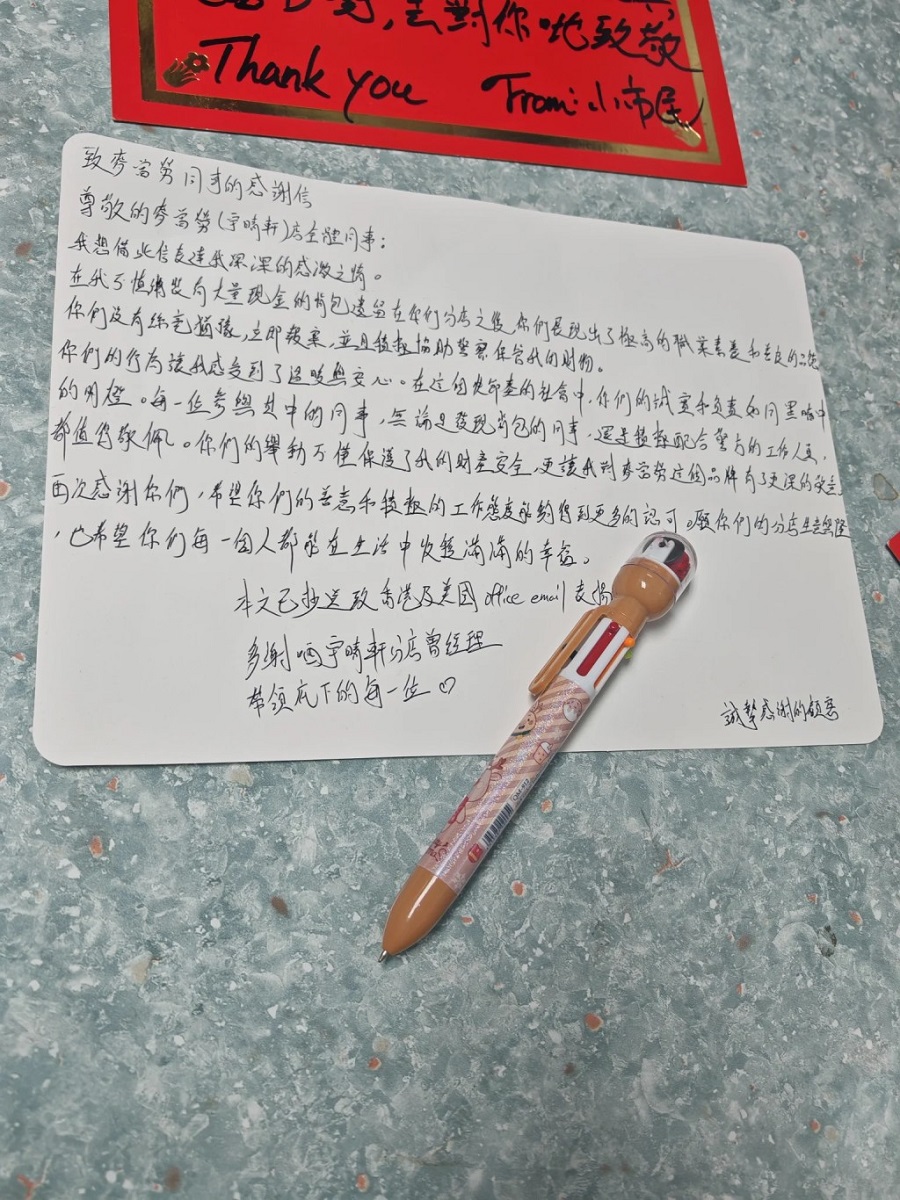 ，去對你哋致敬
Thank you From: 小市民
致麥當勞同事的感謝信
尊敬的麥當勞(宇晴軒)店全體同事：
我想借此信表達我深深的感激之情。
在我不慎將裝有大量現金的背包遺留在你們分店之後，你們展現出了極高的職業素養和善良的品德
你們沒有絲毫猶豫，立即報案，並且積極協助警察保管我的財物。
你們的行為讓我感受到了溫暖與安心。在這個快節奏的社會中，你們的誠實和負責如同黑暗中
的明燈。每一位參與其中的同事，無論是發現背包的同事，還是積極配合警方的工作人員，
都值得敬佩。你們的舉動不僅保護了我的財產安全，更讓我對麥當勞這個品牌有了更深的
再次感謝你們，希望你們的善意和積極的工作態度能夠得到更多的認可。願你們的分店生意興隆
，也希望你們每一個人都能在生活中收穫滿滿的幸福。
本文已抄送致香港及美國office email 表揚
多謝晒宇晴軒分店曾經理
帶領底下的每一位♡
誠摯感謝的顧客